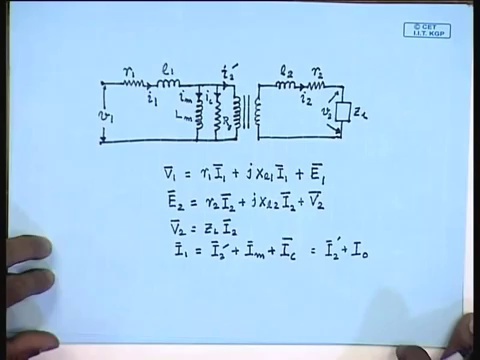 © CET
I.I.T. KGP
r₁ l₁ i₂′ l₂ r₂
i₁ iₘ i꜀ i₂
v₁ Lₘ R v₂ Z_L
V̄₁ = r₁Ī₁ + jx_{l1}Ī₁ + Ē₁
Ē₂ = r₂Ī₂ + jx_{l2}Ī₂ + V̄₂
V̄₂ = Z_L Ī₂
Ī₁ = Ī₂′ + Īₘ + Ī_c = Ī₂′ + Ī₀